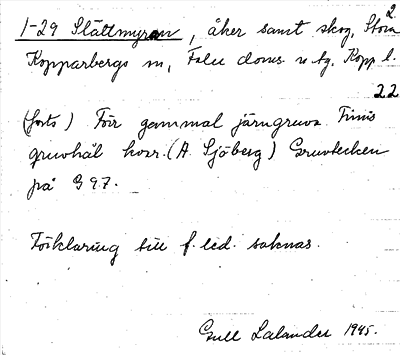 2.
1-29 Slättmyran, åker samt skog, Stora
Kopparbergs sn, Falu doms. o. tg, Kopp l.
22
(forts) För gammal järngruva. Finns
gruvhål kvar. (A. Sjöberg) Gruvtecken
på G 97.
Förklaring till f. led. saknas.
Gull Lalander 1945.